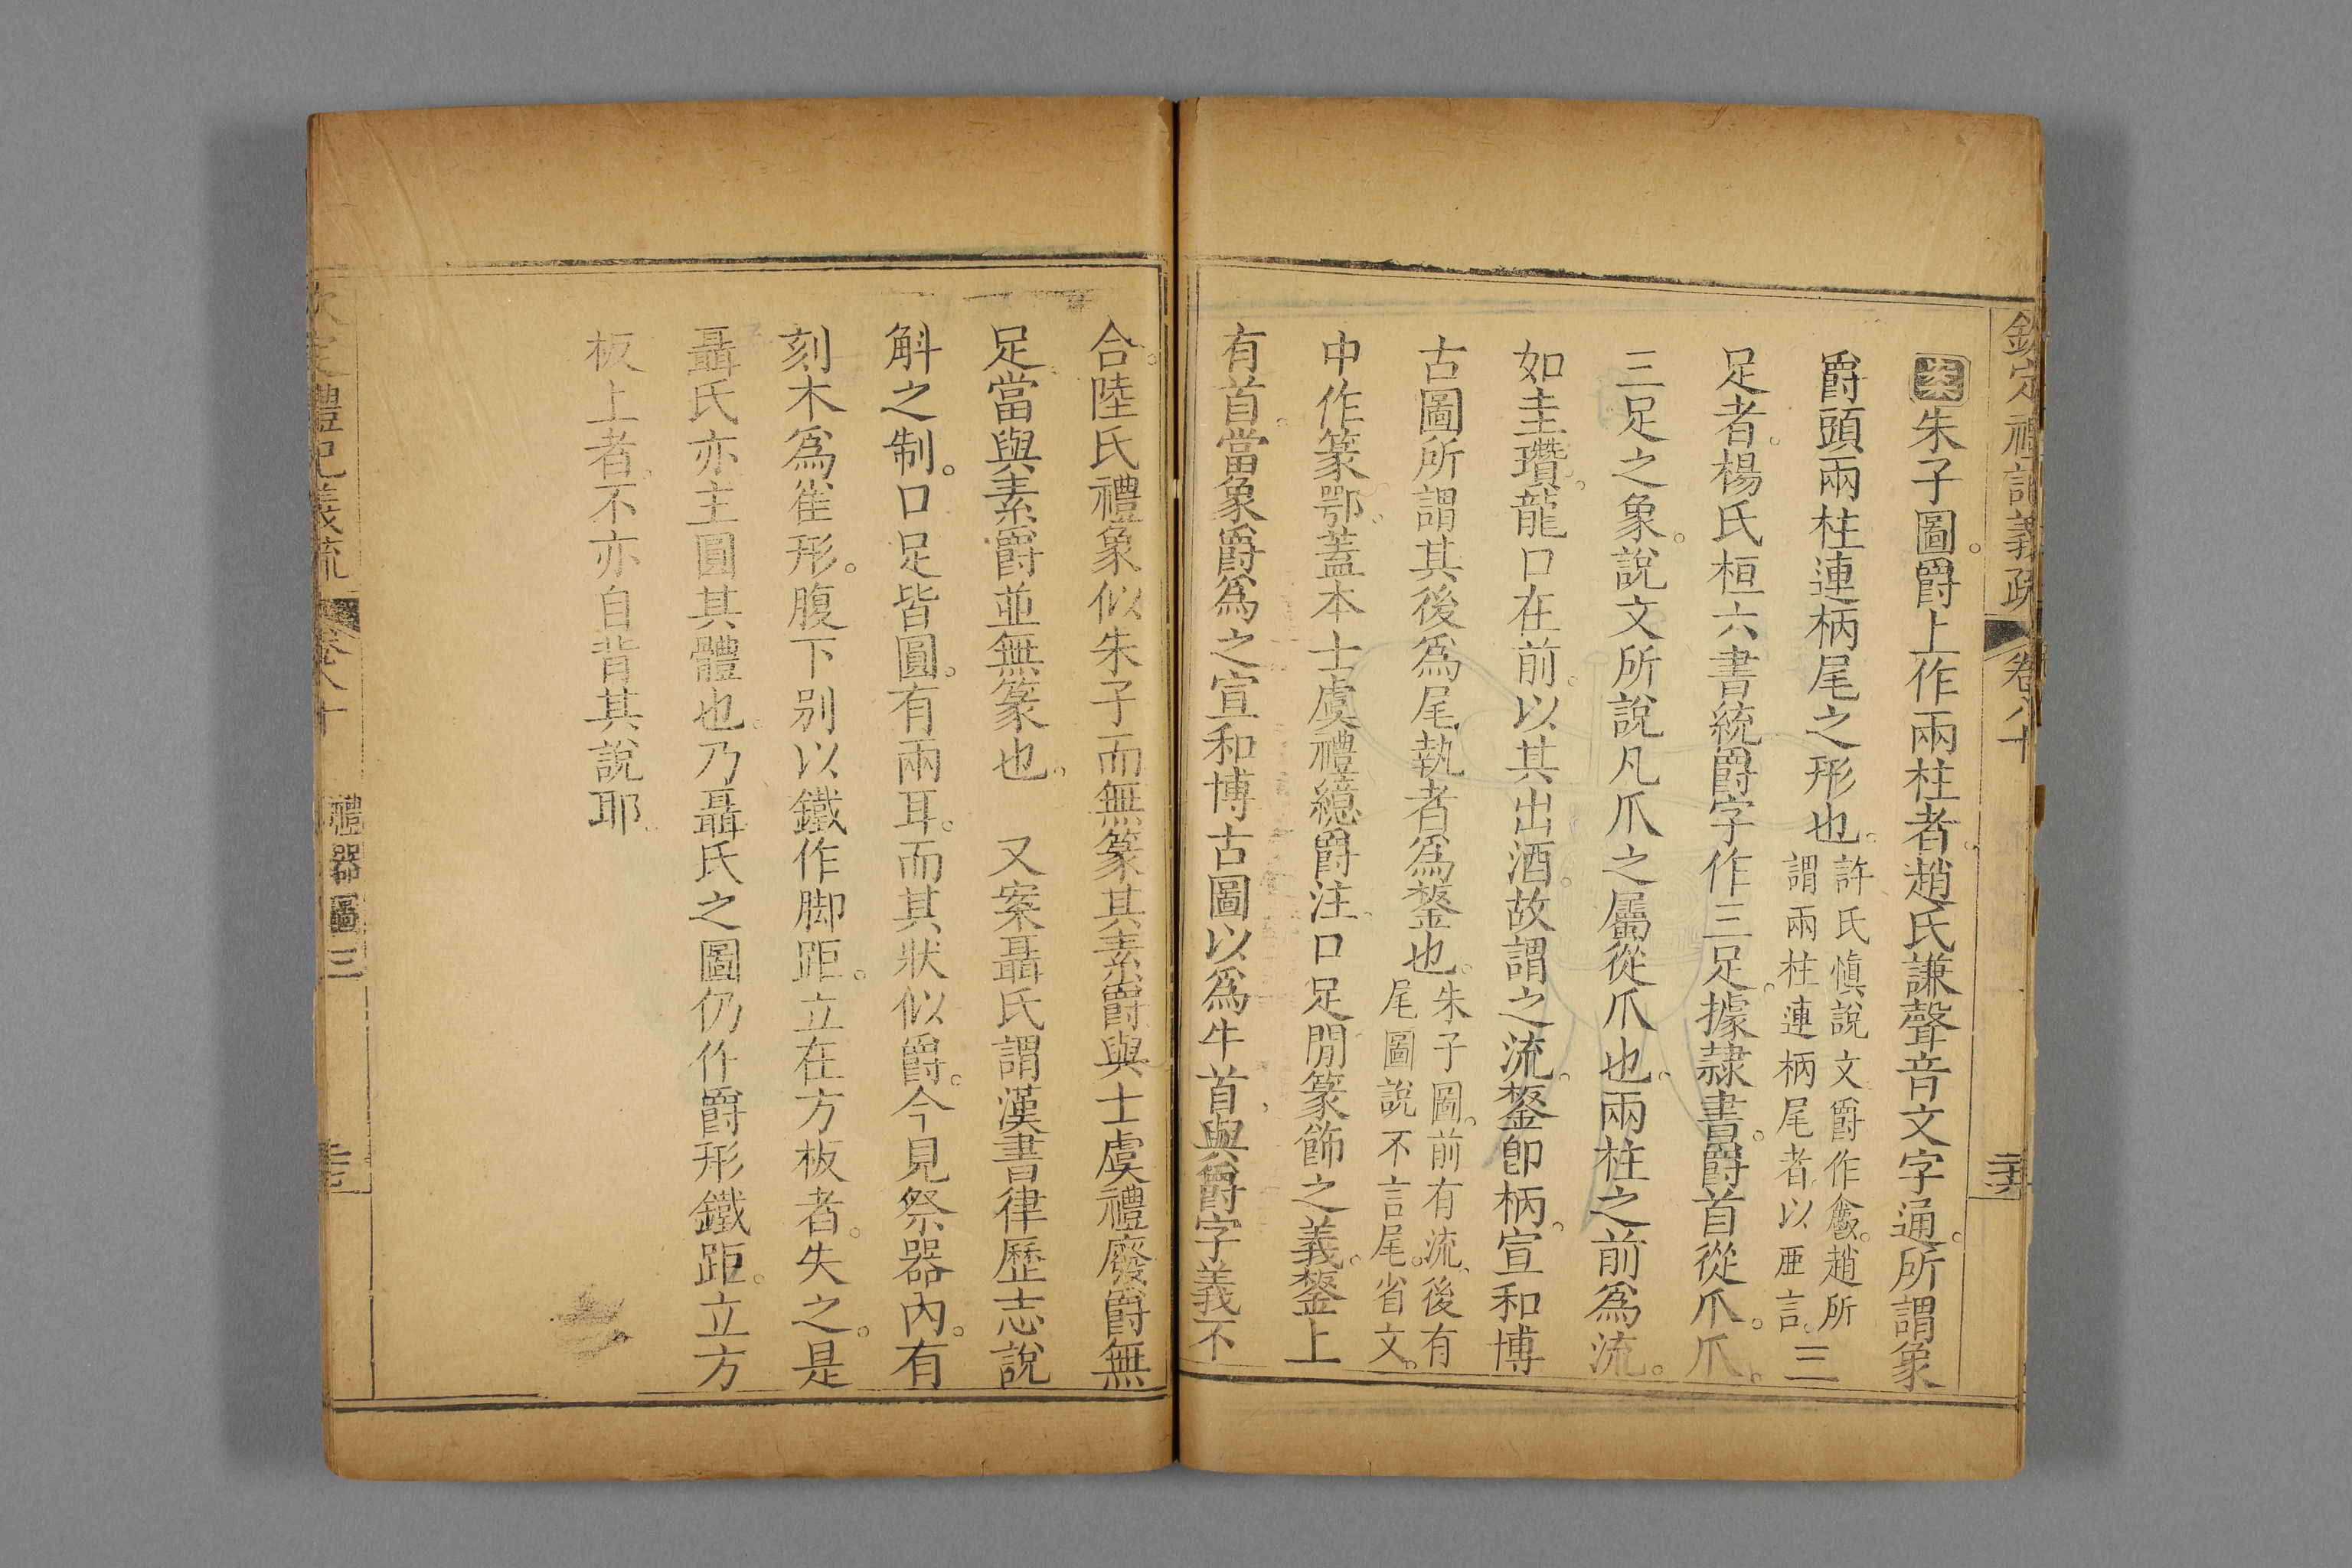 欽定禮記義疏 卷八十
案朱子圖。爵上作兩柱者、趙氏謙聲音文字通。所謂象
爵頭兩柱連柄尾之形也。許氏愼說文爵作𩰥。趙所
謂兩柱連柄尾者、以亜言。三
足者。楊氏桓六書統爵字作三足。據隸書。爵首從爪。爪。
三足之象。說文所說凡爪之屬從爪也。兩柱之前爲流。
如圭瓚。龍口在前。以其出酒。故謂之流。鋬卽柄。宣和博
古圖所謂其後爲尾執者爲鋬也。朱子圖。前有流、後有
尾圖說不言尾。省文。
中作篆鄂。蓋本士虞禮繶爵注。口足閒篆飾之義。鋬上
有首。當象爵爲之宣和博古圖以爲牛首、與爵字義不
合。陸氏禮象似朱子而無篆其素爵與士虞禮廢爵無
足當與素爵並無篆也。 又案聶氏謂漢書律歷志說
斛之制。口足皆圓。有兩耳。而其狀似爵。今見祭器內。有
刻木爲雀形。腹下别以鐵作脚距。立在方板者。失之。是
聶氏亦主圓其體也。乃聶氏之圖仍作爵形鐵距。立方
板上者。不亦自背其說耶。
欽定禮記義疏 卷八十 禮器圖三